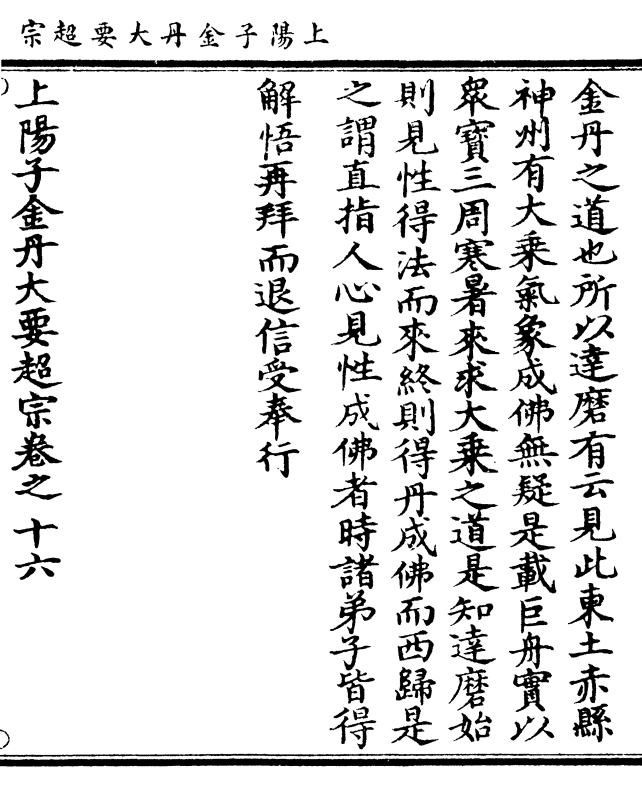 上陽子金丹大要超宗
金丹之道也所以達磨有云見此東土赤縣
神州有大乗氣象成佛無疑是載巨舟實以
眾寶三周寒暑來求大乗之道是知達磨始
則見性得法而來終則得丹成佛而西歸是
之謂直指人心見性成佛者時諸弟子皆得
解悟再拜而退信受奉行
上陽子金丹大要超宗卷之十六